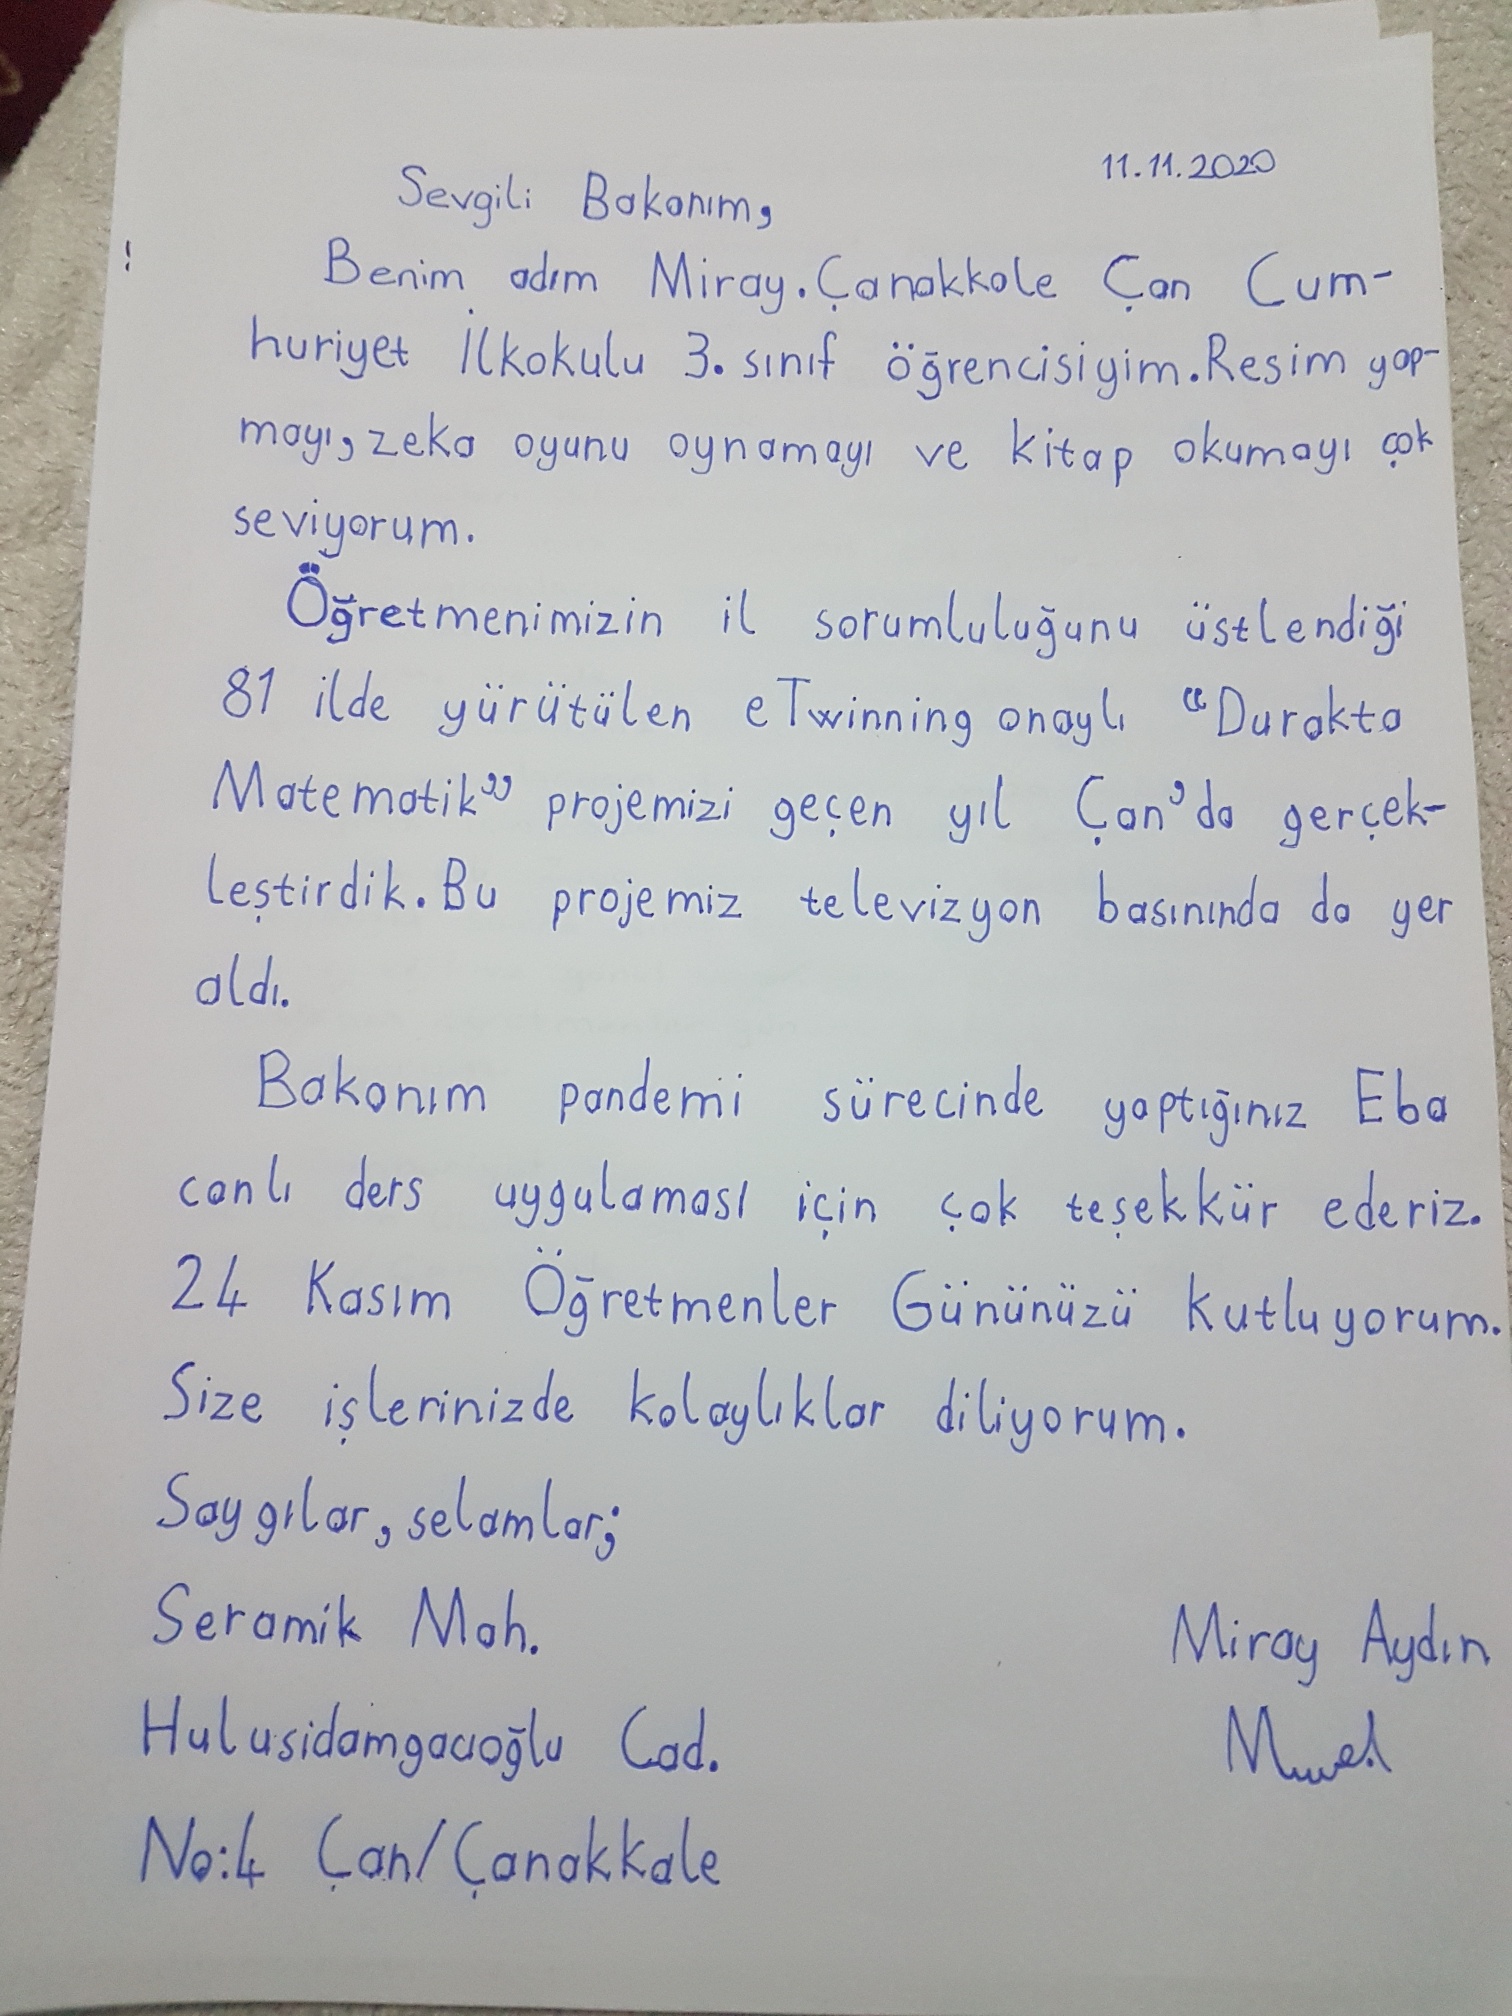 11.11.2020
Sevgili Bakanım,
Benim adım Miray. Çanakkale Çan Cum-
huriyet İlkokulu 3. sınıf öğrencisiyim. Resim yap-
mayı, zeka oyunu oynamayı ve kitap okumayı çok
seviyorum.
Öğretmenimizin il sorumluluğunu üstlendiği
81 ilde yürütülen eTwinning onaylı "Durakta
Matematik" projemizi geçen yıl Çan'da gerçek-
leştirdik. Bu projemiz televizyon basınında da yer
aldı.
Bakanım pandemi sürecinde yaptığınız Eba
canlı ders uygulaması için çok teşekkür ederiz.
24 Kasım Öğretmenler Gününüzü kutluyorum.
Size işlerinizde kolaylıklar diliyorum.
Saygılar, selamlar;
Seramik Mah.
Miray Aydın
Hulusidamgacıoğlu Cad.
No:4 Çan/Çanakkale